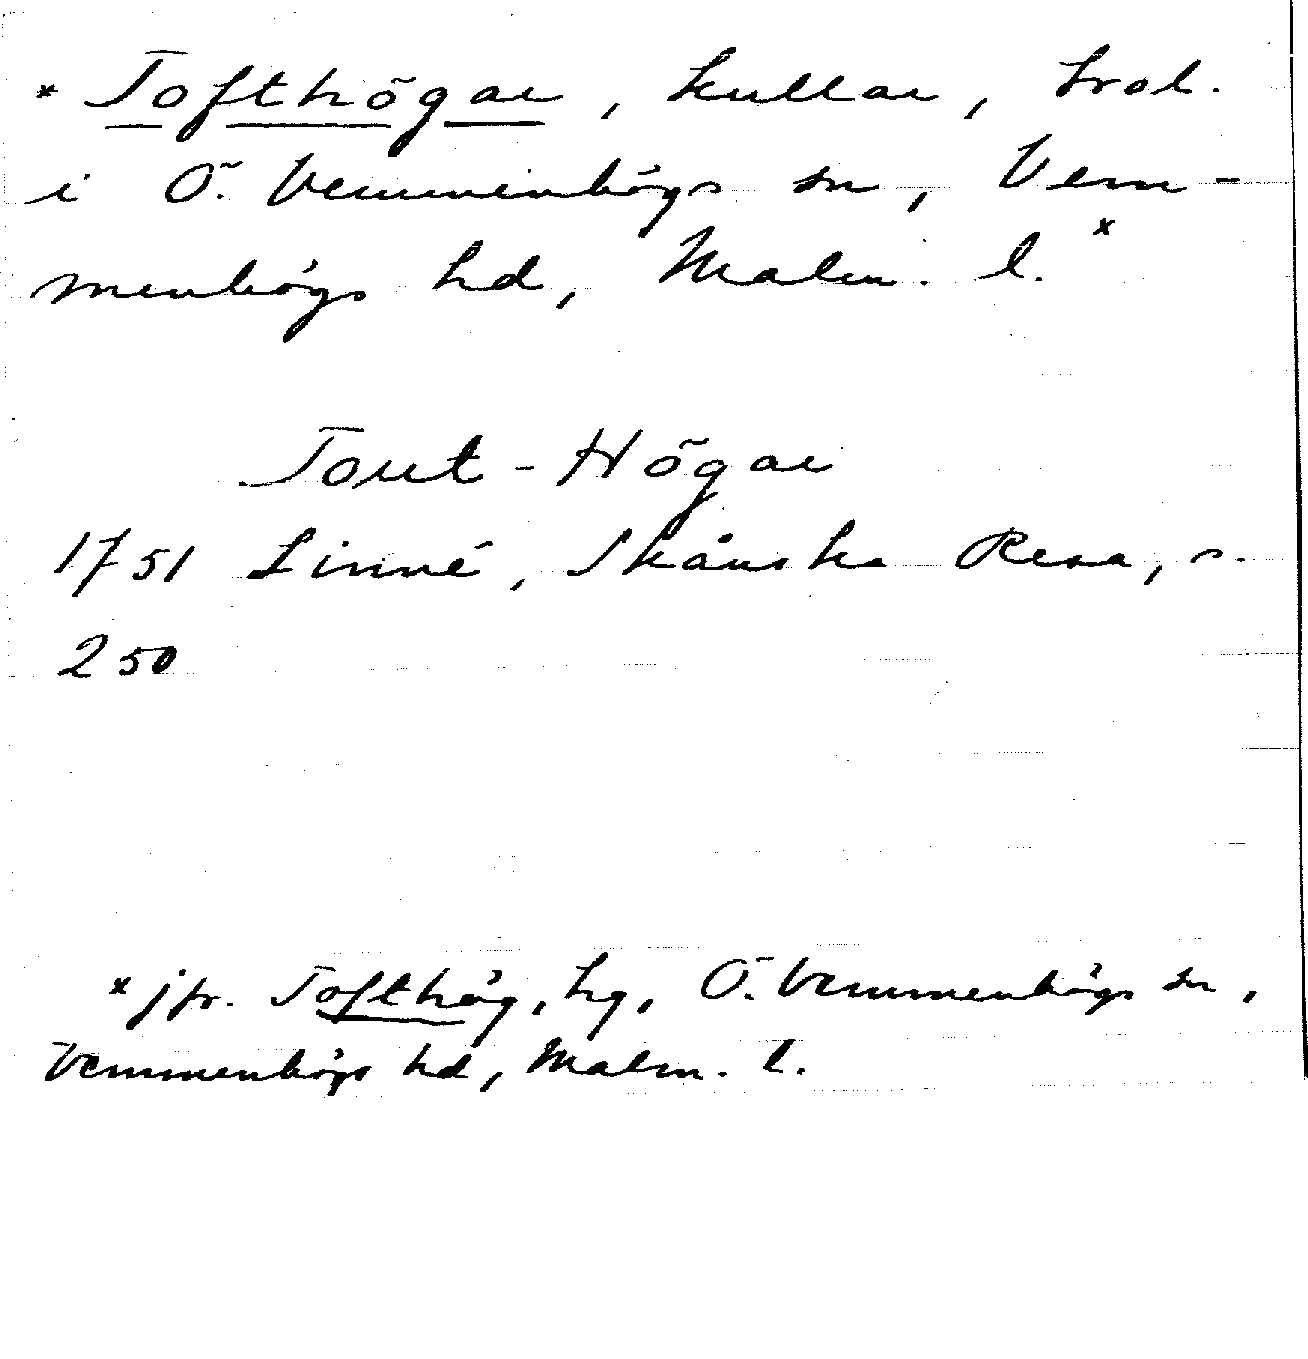 * Tofthögar, kullar, trol.
i Ö. Vemmenhögs sn, Vem-
menhögs hd, Malm. l. *
Tout-Högar
1751 Linné, Skånska Resa, s.
250
* jfr. Tofthög, hg, Ö. Vemmenhögs sn,
Vemmenhögs hd, Malm. l.